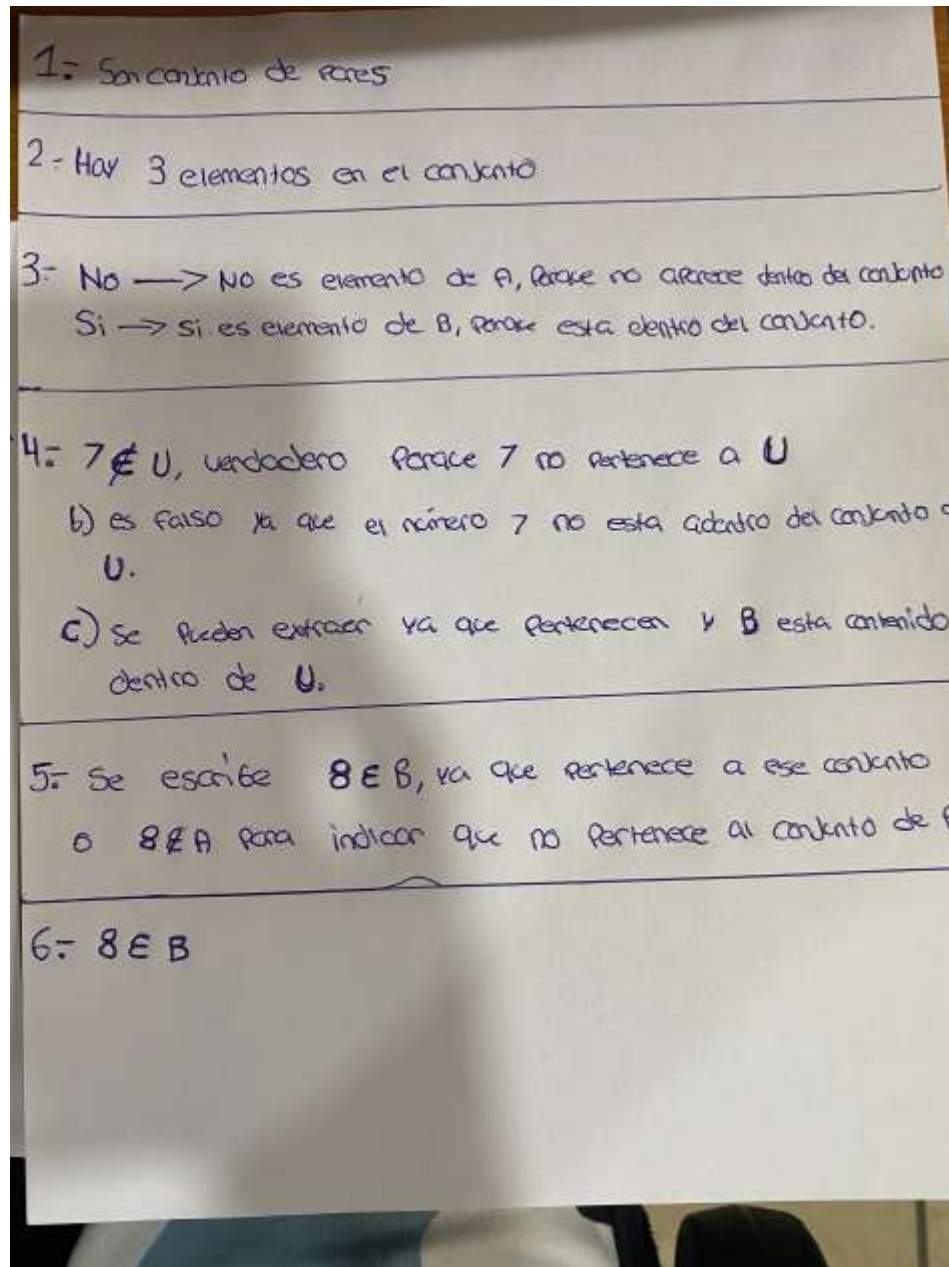 1.- Son conjunto de pares
2.- Hay 3 elementos en el conjunto
3.- No —> No es elemento de A, Porque no aparece dentro del conjunto
Si —> si es elemento de B, porque esta dentro del conjunto.
4.- 7 ∉ U, verdadero Porque 7 no pertenece a U
b) es falso ya que el número 7 no esta adentro del conjunto
U.
c) se pueden extraer ya que pertenecen y B esta contenido
dentro de U.
5.- Se escribe 8 ∈ B, ya que pertenece a ese conjunto
o 8 ∉ A para indicar que no pertenece al conjunto de
6.- 8 ∈ B